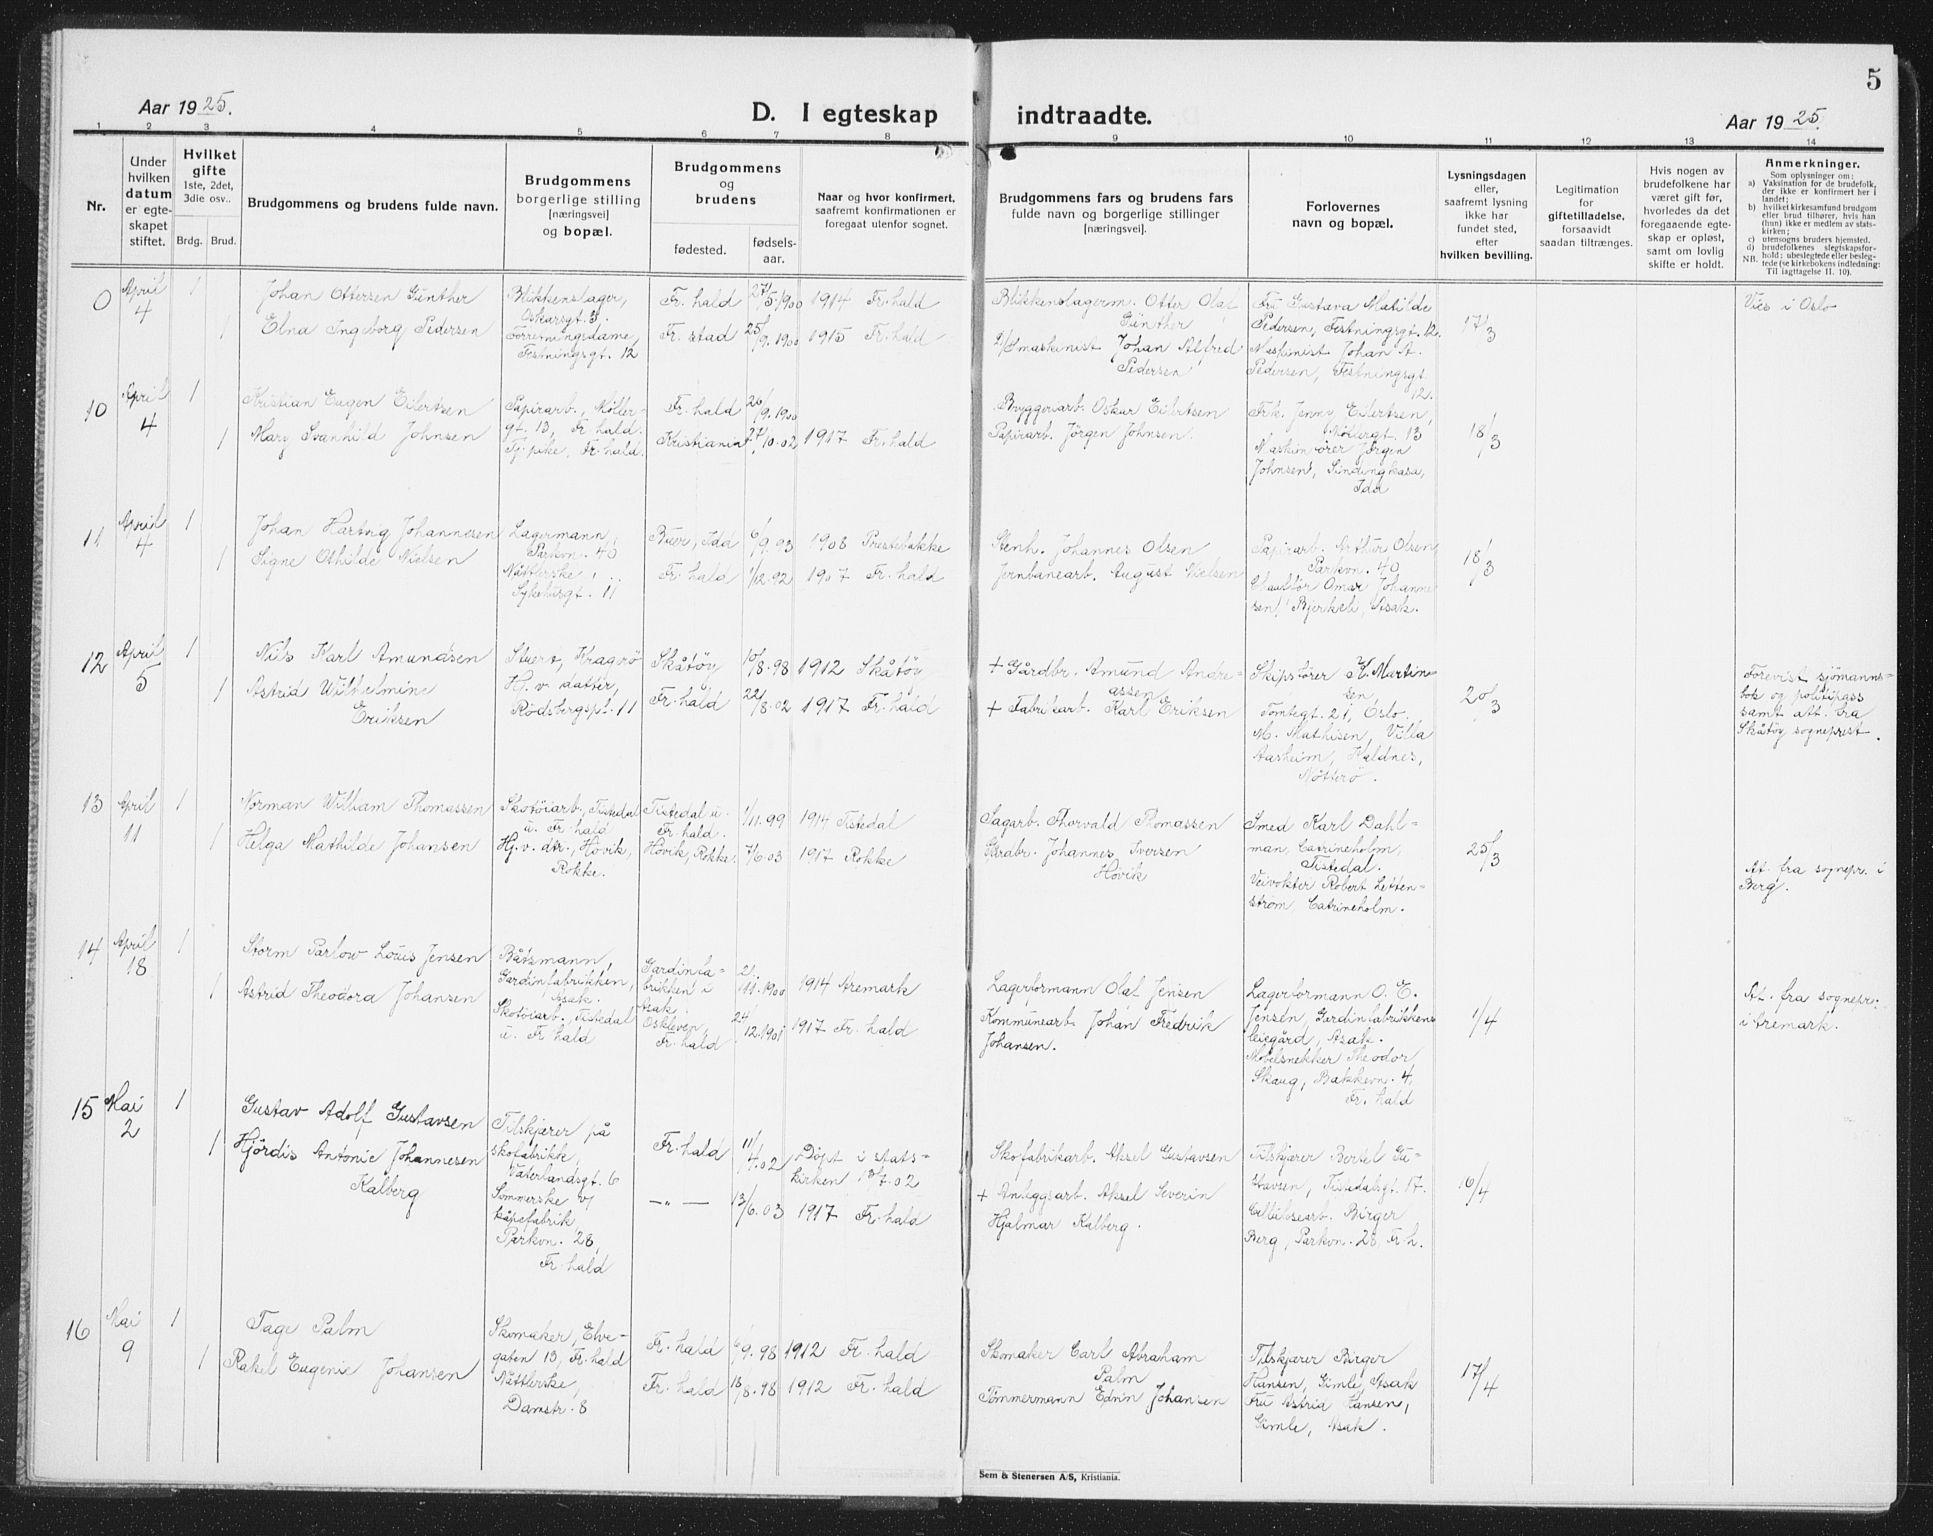 5
Aar 1925.
D. I egteskap indtraadte.
Aar 1925.
1 2 3 4 5 6 7 8 9 10 11 12 13 14
Nr.
Under hvilken datum er egteskapet stiftet.
Hvilket gifte
1ste, 2det, 3die osv..
Brdg. Brud.
Brudgommens og brudens fulde navn.
Brudgommens borgerlige stilling [næringsvei] og bopæl.
Brudgommens og brudens
fødested.
fødselsaar.
Naar og hvor konfirmert, saafremt konfirmationen er foregaat utenfor sognet.
Brudgommens fars og brudens fars fulde navn og borgerlige stillinger [næringsvei].
Forlovernes navn og bopæl.
Lysningsdagen eller, saafremt lysning ikke har fundet sted, efter hvilken bevilling.
Legitimation for giftetilladelse, forsaavidt saadan tiltrænges.
Hvis nogen av brudefolkene har været gift før, hvorledes da det foregaaende egteskap er opløst, samt om lovlig skifte er holdt.
Anmerkninger.
Som oplysninger om:
a) Vaksination for de brudefolk, der ikke er konfirmert her i landet;
b) hvilket kirkesamfund brudgom eller brud tilhører, hvis han (hun) ikke er medlem av statskirken;
c) utensogns bruders hjemsted.
d) brudefolkenes slegtskapsforhold: ubeslegtede eller beslegtede (se kirkebokens indledning:
NB. Til iagttagelse II. 10).
April 4
1
Johan Ottersen Günther
Blikkenslager,
Oskarsgt. 3.
Fr. hald
27/5 1900
1914 Fr. hald
Blikkenslagerm. Otter Olaf
Günther
Fru Gustava Matilde
Pedersen, Festningsgt. 12.
17/3
Vies i Oslo
1
Elna Ingeborg Pedersen
Forretningsdame,
Festningsgt. 12
Fr. stad
25/9. 1900
1915 Fr. hald
maskinist Johan Alfred
Pedersen
Maskinist Johan A.
Pedersen, Festningsgt.
12.
10
April 4
1
Kristian Eugen Eilertsen
Papirarb., Möllergt. 13, Fr. hald.
Fr. hald
26/9. 1900
Bryggeriarb. Oskar Eilertsen
Frk. Jenny Eilertsen,
Möllergt. 13
18/3
1
Mary Svanhild Johnsen
Fr. hald.
Kristiania
27/10. 02
1917 Fr. hald
Papirarb. Jörgen Johnsen.
Maskinfører Jörgen
Johnsen,
Ida
11
April 4
1
Johan Hartvig Johannesen
Lagermann,
Parkvn. 40
Buer, Ida
6/9. 93
1908 Prestebakke
Stenh. Johannes Olsen
Papirarb. Arthur Olsen,
Parkvn. 40
18/3
1
Signe Othilde Nielsen
Nåtlerske,
Sykehusgt. 11
Fr. hald
1/12. 92
1907 Fr. hald
Jernbanearb. August Nielsen
Omar Johannesen, Bjerkeli, Asak.
12
April 5
1
Nils Karl Amundsen
Stuert, Kragerö
Skåtöy
10/8. 98
1912 Skåtöy
+ Gårdbr. Amund Andreassen
Skipsförer K. Martinsen
Tomtegt. 21, Oslo.
20/3
Forevist sjömannsbok og politipass
samt att. fra
Skåtöy sogneprest.
1
Astrid Wilhelmine
Eriksen
Hj. v. datter,
Rödsbergspl. 11
Fr. hald
22/8. 02
1917 Fr. hald
+ Fabrikarb. Karl Eriksen
M. Mathisen, Villa
Aasheim, Kaldnes,
Nötterö.
13
April 11
1
Norman William Thomassen
Skotöiarb., Tistedal
u. Fr. hald
Tistedal u.
Fr. hald.
1/11. 99
1914 Tistedal
Sagarb. Thorvald Thomassen
Smed Karl Dahlman, Catrineholm,
Tistedal.
25/3
At. fra sognepr. i
Berg.
1
Helga Mathilde Johansen
Hj. v. dtr., Hövik,
Rokke.
Hövik, Rokke.
7/6. 03
1917 Rokke
Johannes Iversen
Hövik
Veivokter Robert Lettenström, Catrineholm.
14
April 18
1
Storm Parlow Louis Jensen
Båtsmann,
Gardinfabrikken,
Asak.
Gardinfabrikken i
Asak.
21/11. 1900
1914 Aremark
Lagerformann Olaf Jensen
Lagerformann O. E.
Jensen, Gardinfabrikkens
Leiegård, Asak.
1/4
At. fra sognepr.
i Aremark.
1
Astrid Theodora Johansen
Skotöiarb., Tistedal
u. Fr. hald
Oskleven,
Fr. hald
24/12. 1901
1917 Fr. hald
Kommunearb. Johan Fredrik
Johansen.
Möbelsnekker Theodor
Skaug, Bakkevn. 4,
Fr. hald
15
Mai 2
1
Gustav Adolf Gustavsen
Tilskjærer på
skofabrikk,
Vaterlandsgt. 6
Fr. hald
11/4. 02
Döpt i statskirken 13/7. 02
Skofabrikarb. Aksel Gustavsen
Tilskjærer Bertel Gustavsen, Tistedalsgt. 17.
16/4
1
Hjördis Antonie Johannesen
Kalberg
Sömmerske v/
kåpefabrik,
Parkvn. 28,
Fr. hald
— " —
13/6. 03
1917 Fr. hald
+ Anleggsarb. Aksel Severin
Hjalmar Kalberg.
Cellulosearb. Birger
Berg, Parkvn. 28, Fr. h.
16
Mai 9
1
Tage Palm
Skomaker, Elvegaten 13, Fr. hald
Fr. hald
6/9. 98
1912 Fr. hald
Skomaker Carl Abraham
Palm
Tilskjærer Birger
Hansen, Gimle, Asak
17/4
1
Rakel Eugenie Johansen
Nåtlerske,
Damstr. 8
Fr. hald
18/8. 98
1912 Fr. hald
Tömmermann Edvin Johansen
Fru Astrid Hansen,
Gimle, Asak.
Sem & Stenersen A/S, Kristiania.